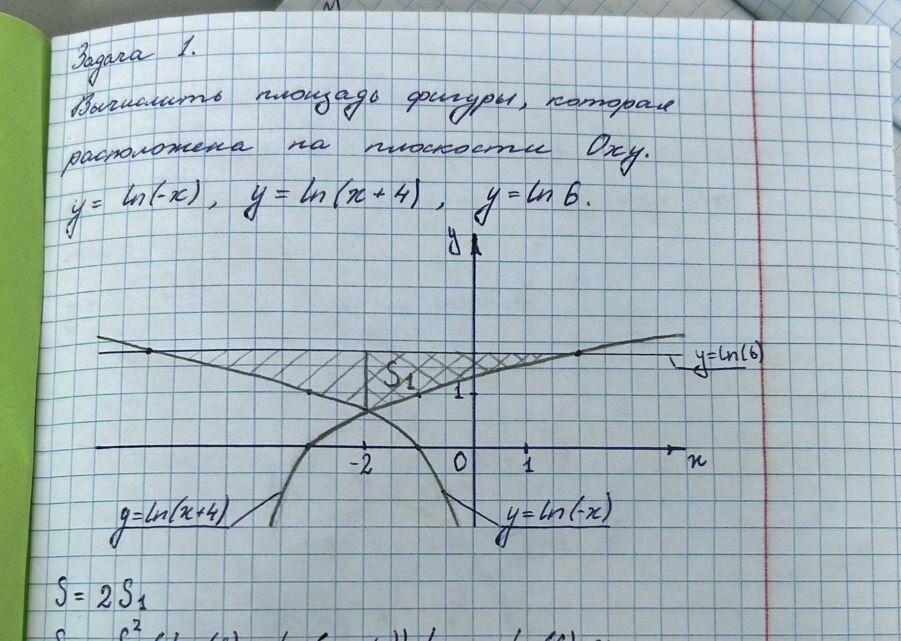 Задача 1.
Вычислить площадь фигуры, которая
расположена на плоскости Oxy.
y = ln(-x), y = ln(x+4), y = ln 6.
y
y=ln(6)
S1
1
-2 0 1 x
y=ln(x+4) y=ln(-x)
S = 2S1